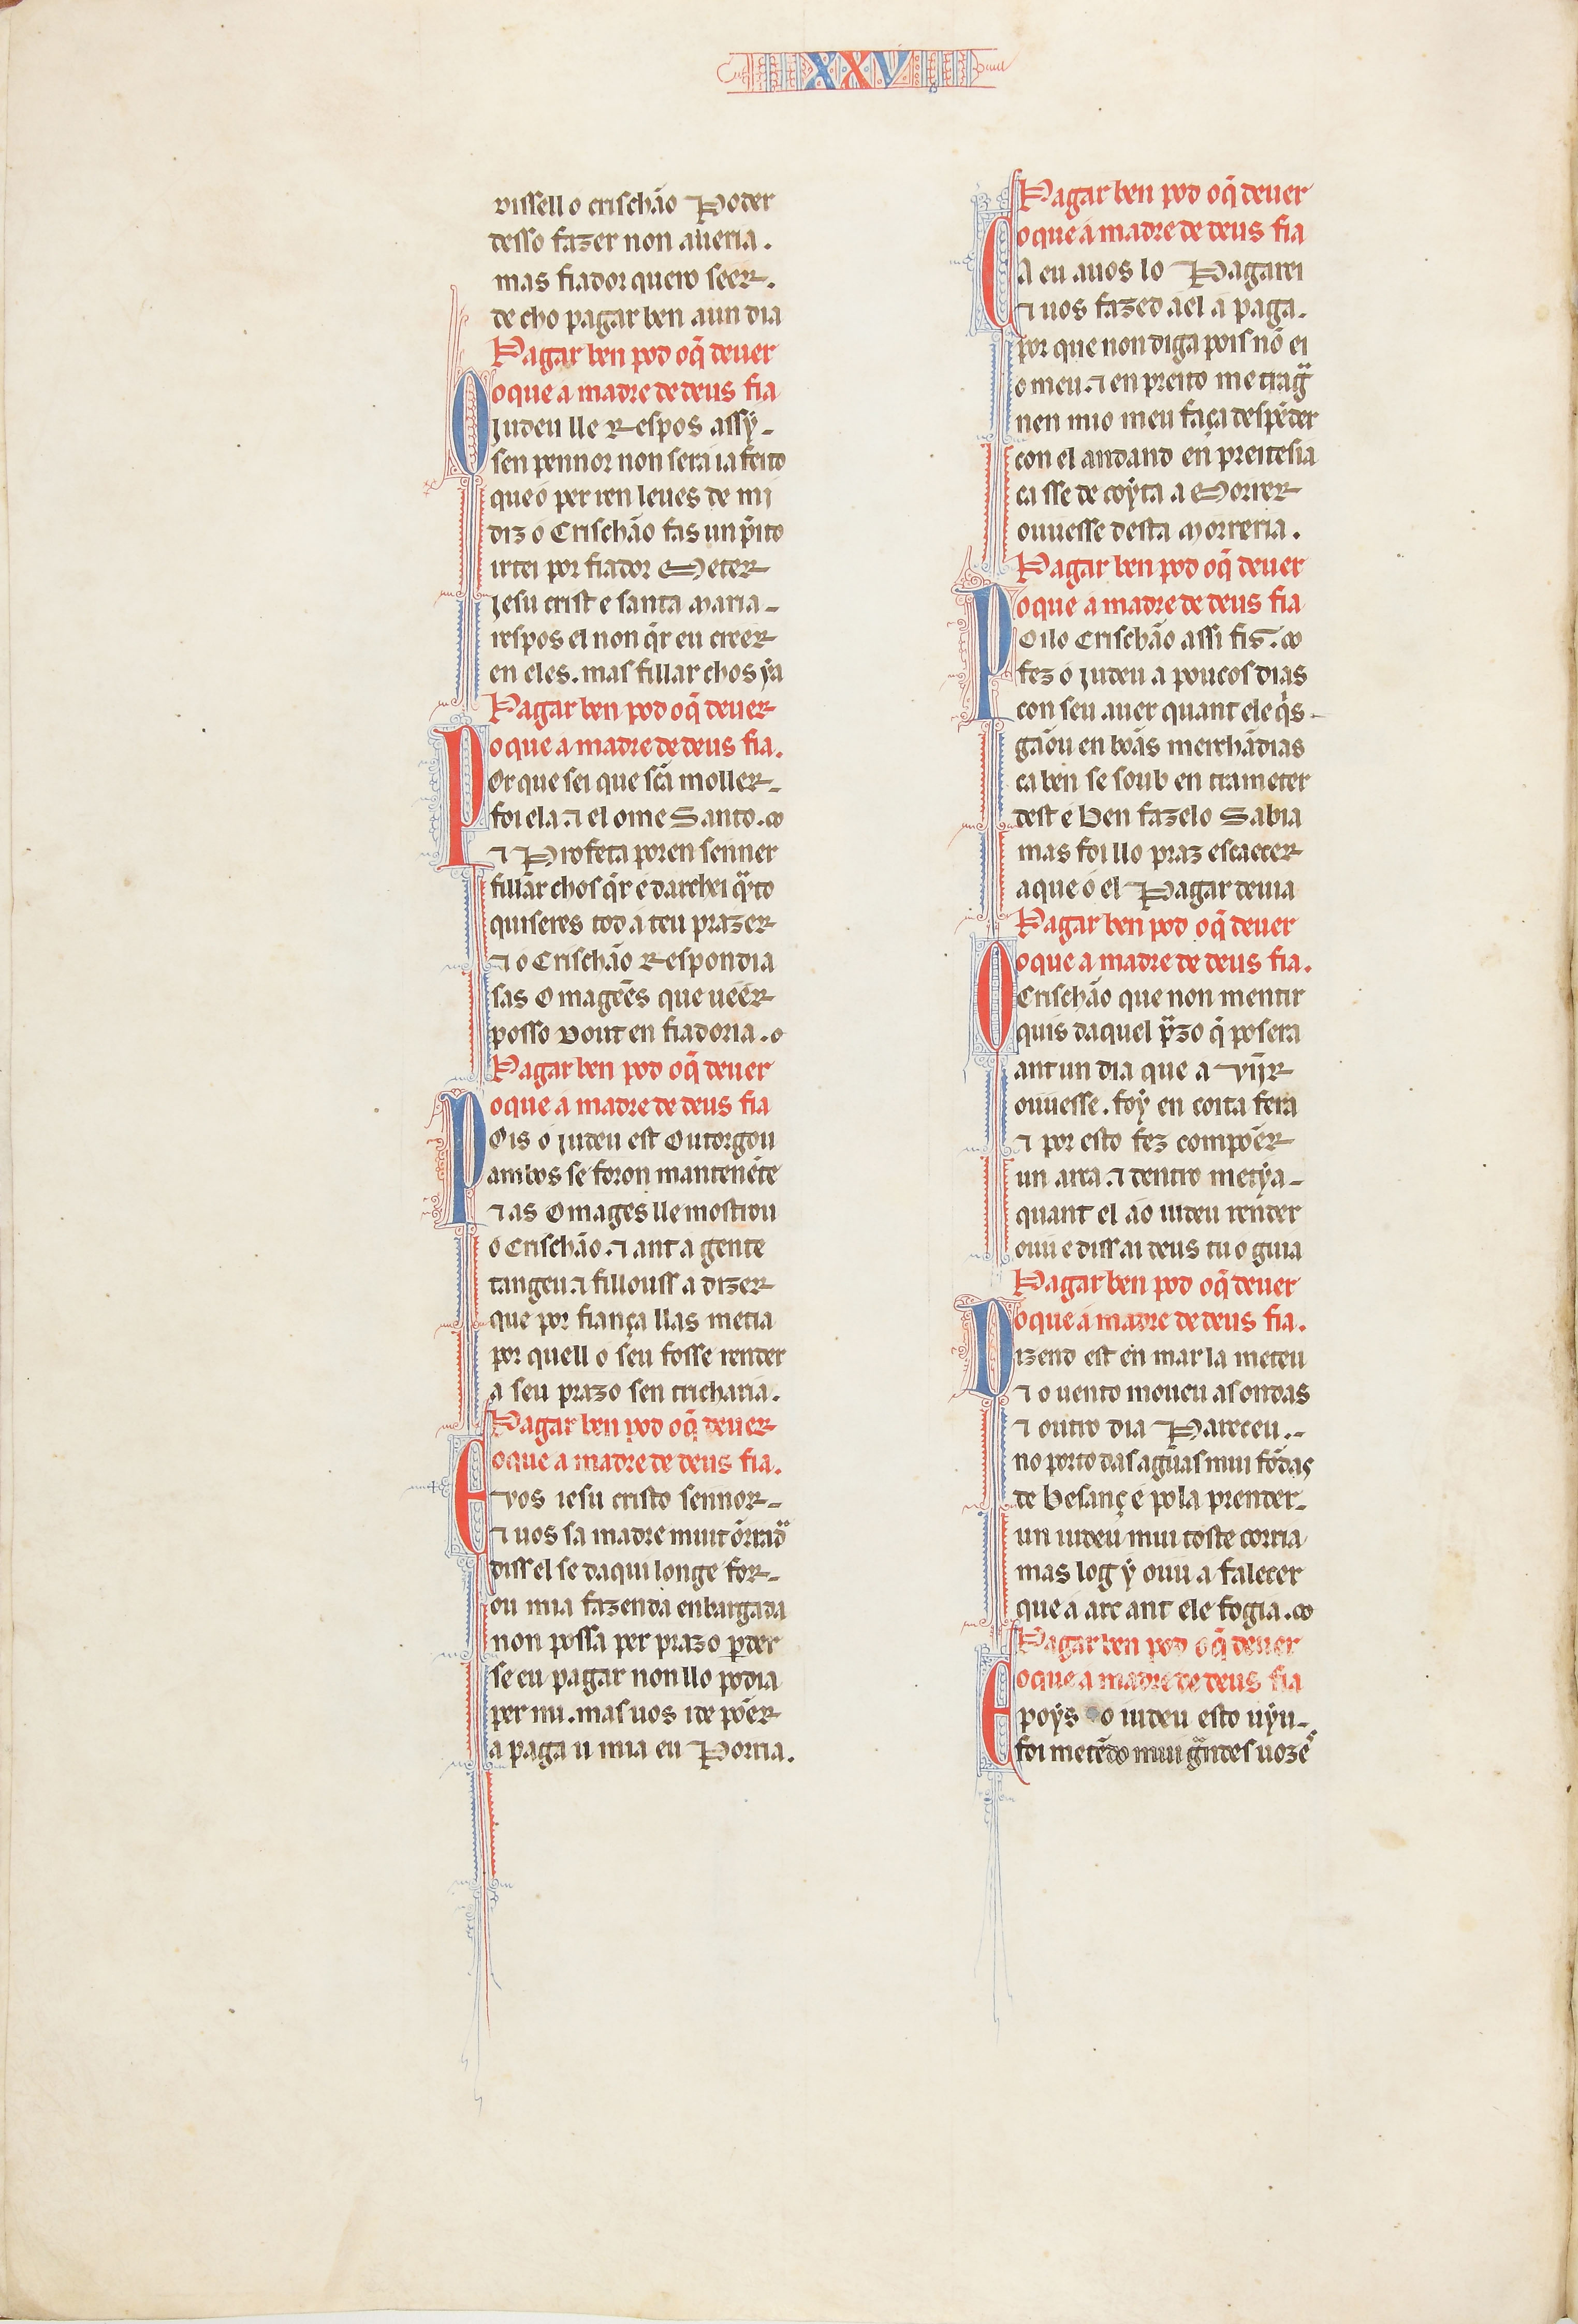 XXV
dissello crischão Poder
desso fazer non aueria.
mas fiador quero seer.
de cho pagar ben aun dia
Pagar ben pod oq̄ deuer
oque a madre de deus fia
O judeu lle Respos assÿ-
sen pennor non sera ia feito
que o per ren leues de mi
diz o Crischão fas un p̄ito
irtei por fiador Meter
jesu crist e santa Maria-
respos el non q̄r eu creer
en eles. mas fillar chos ÿa
Pagar ben pod oq̄ deuer
oque a madre de deus fia.
Por que sei que sc̄a moller-
foi ela ⁊ el ome Santo.
⁊ Profeta poren senner
fillar chos q̄r e darchei q̄ito
quiseres tod a teu prazer
⁊ o Crischão Respondia
sas Omagēes que ueer
posso dout en fiadoria.
Pagar ben pod oq̄ deuer
oque a madre de deus fia
Pois o judeu est Outorgou
ambos se foron mantenēte
⁊ as Omages lle mostrou
o Crischão. ⁊ ant a gente
tangeu. ⁊ fillouss a dizer
que por fiança llas metia
por quell o seu fosse render
a seu prazo sen tricharia.
Pagar ben pod oq̄ deuer
oque a madre de deus fia.
E vos iesu cristo sennor-
⁊ uos sa madre muit ōrrada
diss el se daqui longe for-
ou mia fazenda enbargada
non possa per prazo ꝑder
se eu pagar non llo podia
per mi. mas uos ide poer
a paga u mia eu Porria.
Pagar ben pod oq̄ deuer
oque a madre de deus fia
Ca eu auos lo Pagarei
⁊ uos fazed ael a paga.
por que non diga pois nō ei
o meu. ⁊ en preito me trag̃
nen mio meu faça despēder
con el andand en preitesia
ca sse de coÿta a Morrer
ouuesse desta Morreria.
Pagar ben pod oq̄ deuer
oque a madre de deus fia
Poilo Crischão assi fis.
fez o judeu a poucos dias
con seu auer quant ele q̄s-
gãou en boãs merchādias
ca ben se soub en trameter
dest e Ben fazelo Sabia
mas foi llo praz escaecer
aque o el Pagar deuia
Pagar ben pod oq̄ deuer
oque a madre de deus fia.
O Crischão que non mentir
quis daquel p̄zo q̄ posera
ant un dia que a Vĩjr
ouuesse. foÿ en coita fera
⁊ por esto fez compoer
un arca. ⁊ dentro metÿa-
quant el ao iudeu render
ouu e diss ai deus tu o guia
Pagar ben pod oq̄ deuer
oque a madre de deus fia.
Dizend est en mar la meteu
⁊ o uento moueu as ondas
⁊ outro dia Pareceu.-
no porto das aguas mui fōdas
de Besanç e pola prender-
un iudeu mui toste corria
mas log ÿ ouu a falecer
que a arc ant ele fogia.
Pagar ben pod oq̄ deuer
oque a madre de deus fia
E poÿs o iudeu esto uÿu-
foi metēdo mui g̃ndes uozē